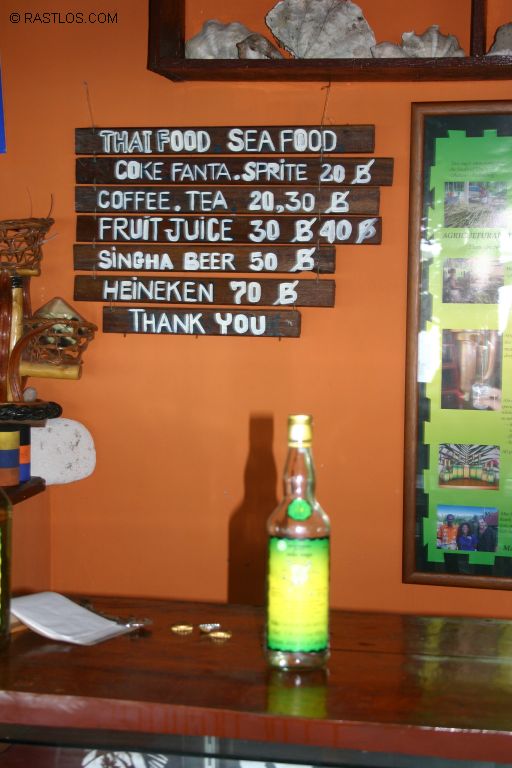 © RASTLOS.COM
THAI FOOD SEAFOOD
COKE FANTA.SPRITE 20 ฿
COFFEE.TEA 20,30 ฿
FRUIT JUICE 30 ฿ 40 ฿
SINGHA BEER 50 ฿
HEINEKEN 70 ฿
THANK YOU